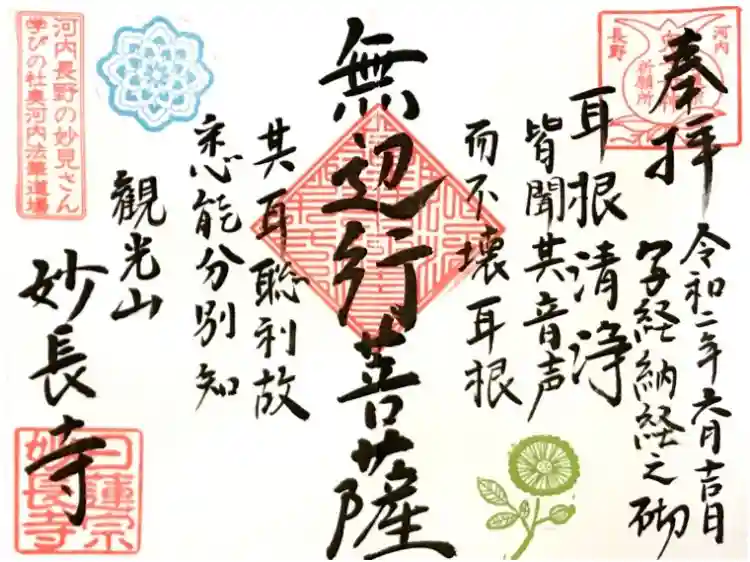 奉拝
令和二年六月吉日
写経納経之砌
耳根清浄
皆聞其音声
而不壊耳根
無辺行菩薩
其耳聡利故
悉能分別知
観光山
妙長寺
河内
長野
祈願所
河内長野の妙見さん
学びの社奥河内法華道場
日蓮宗
妙長寺